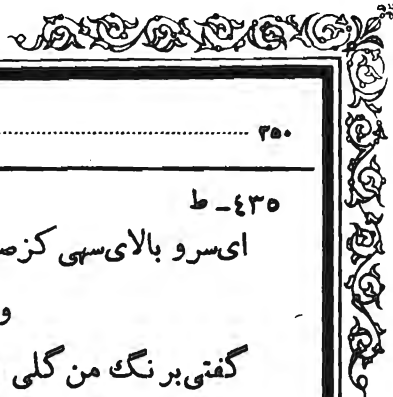 ۳۵۰
٤٣٥ـ ط
ای‌سرو بالای‌سهی کز
و
گفتی بر نگ من گلی